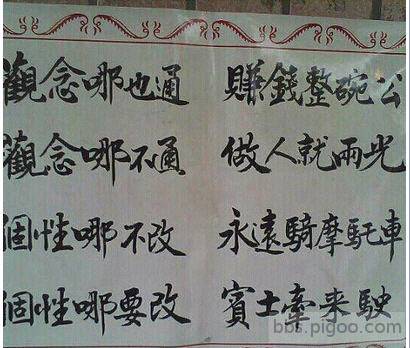 觀念哪也通 賺錢整碗公
觀念哪不通 做人就兩光
個性哪不改 永遠騎摩托車
個性哪要改 賓士牽来駛
bbs.pigoo.com